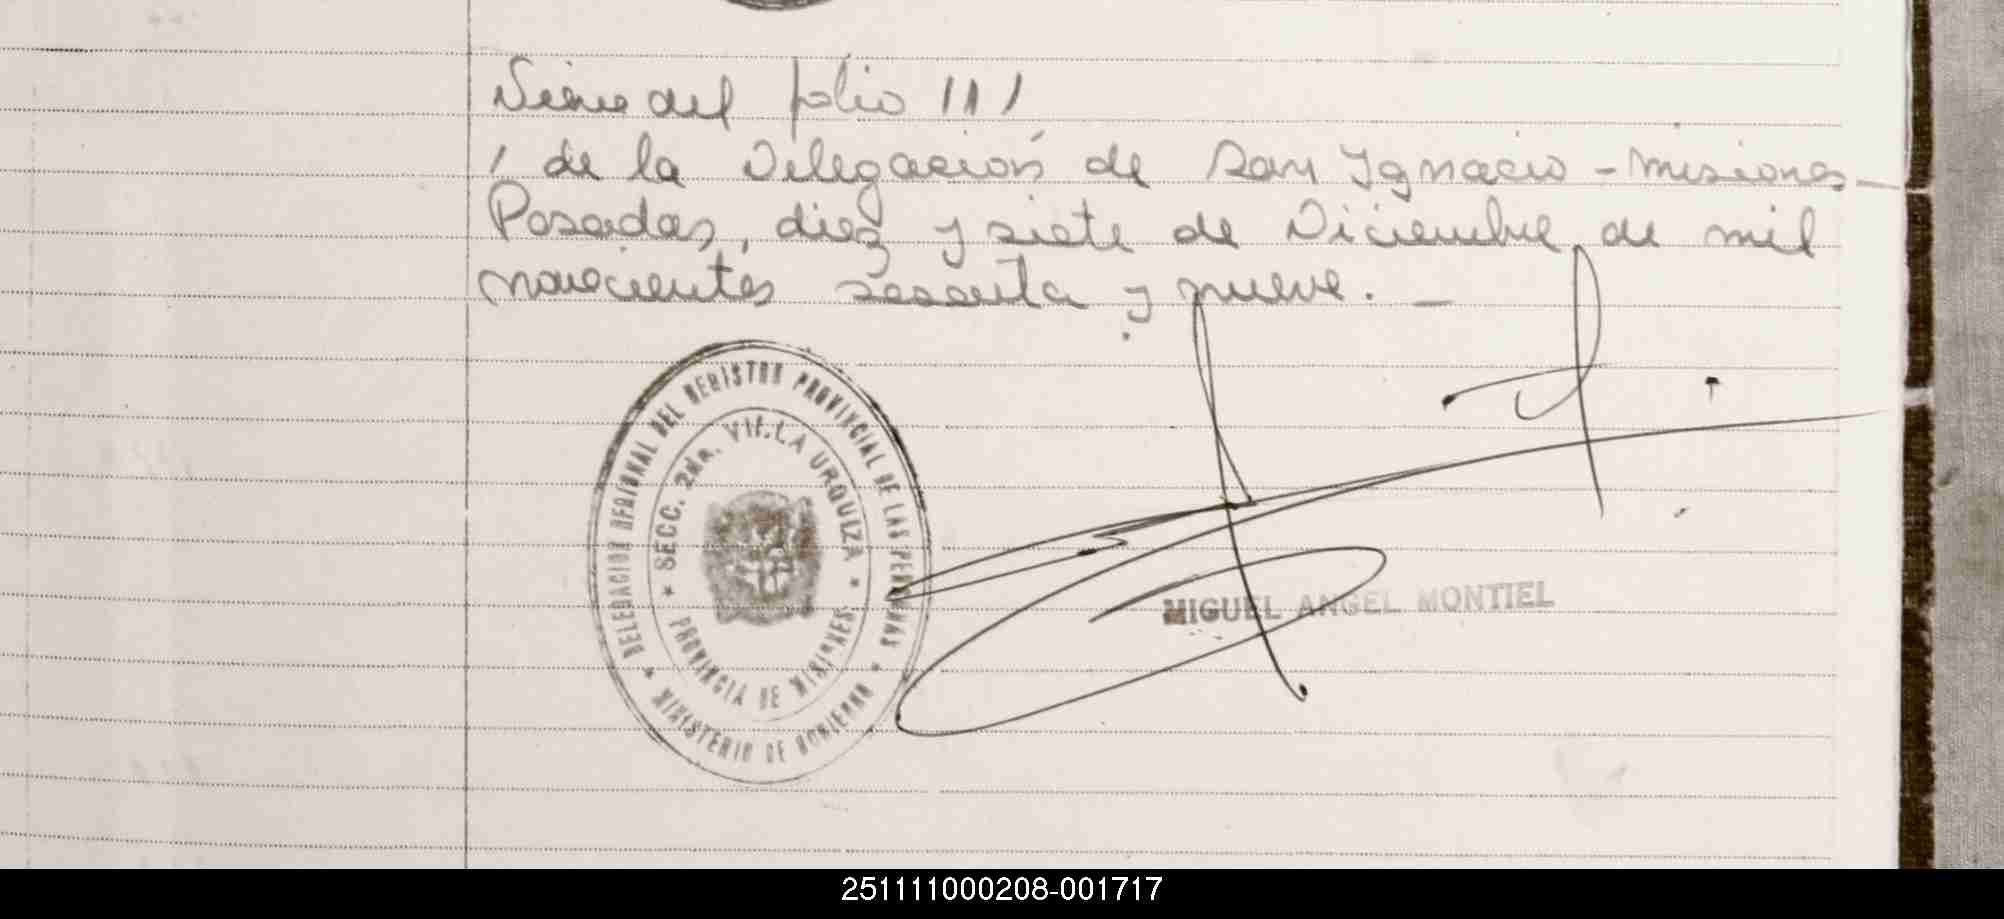 Viene del folio 111
, de la Delegación de San Ignacio - Misiones -
Posadas, diez y siete de Diciembre de mil
novecientos sesenta y nueve. -
DELEGACION REGIONAL DEL REGISTRO PROVINCIAL DE LAS PERSONAS
* MINISTERIO DE GOBIERNO *
* SECC. 2da. VILLA URQUIZA *
PROVINCIA DE MISIONES
MIGUEL ANGEL MONTIEL
251111000208-001717